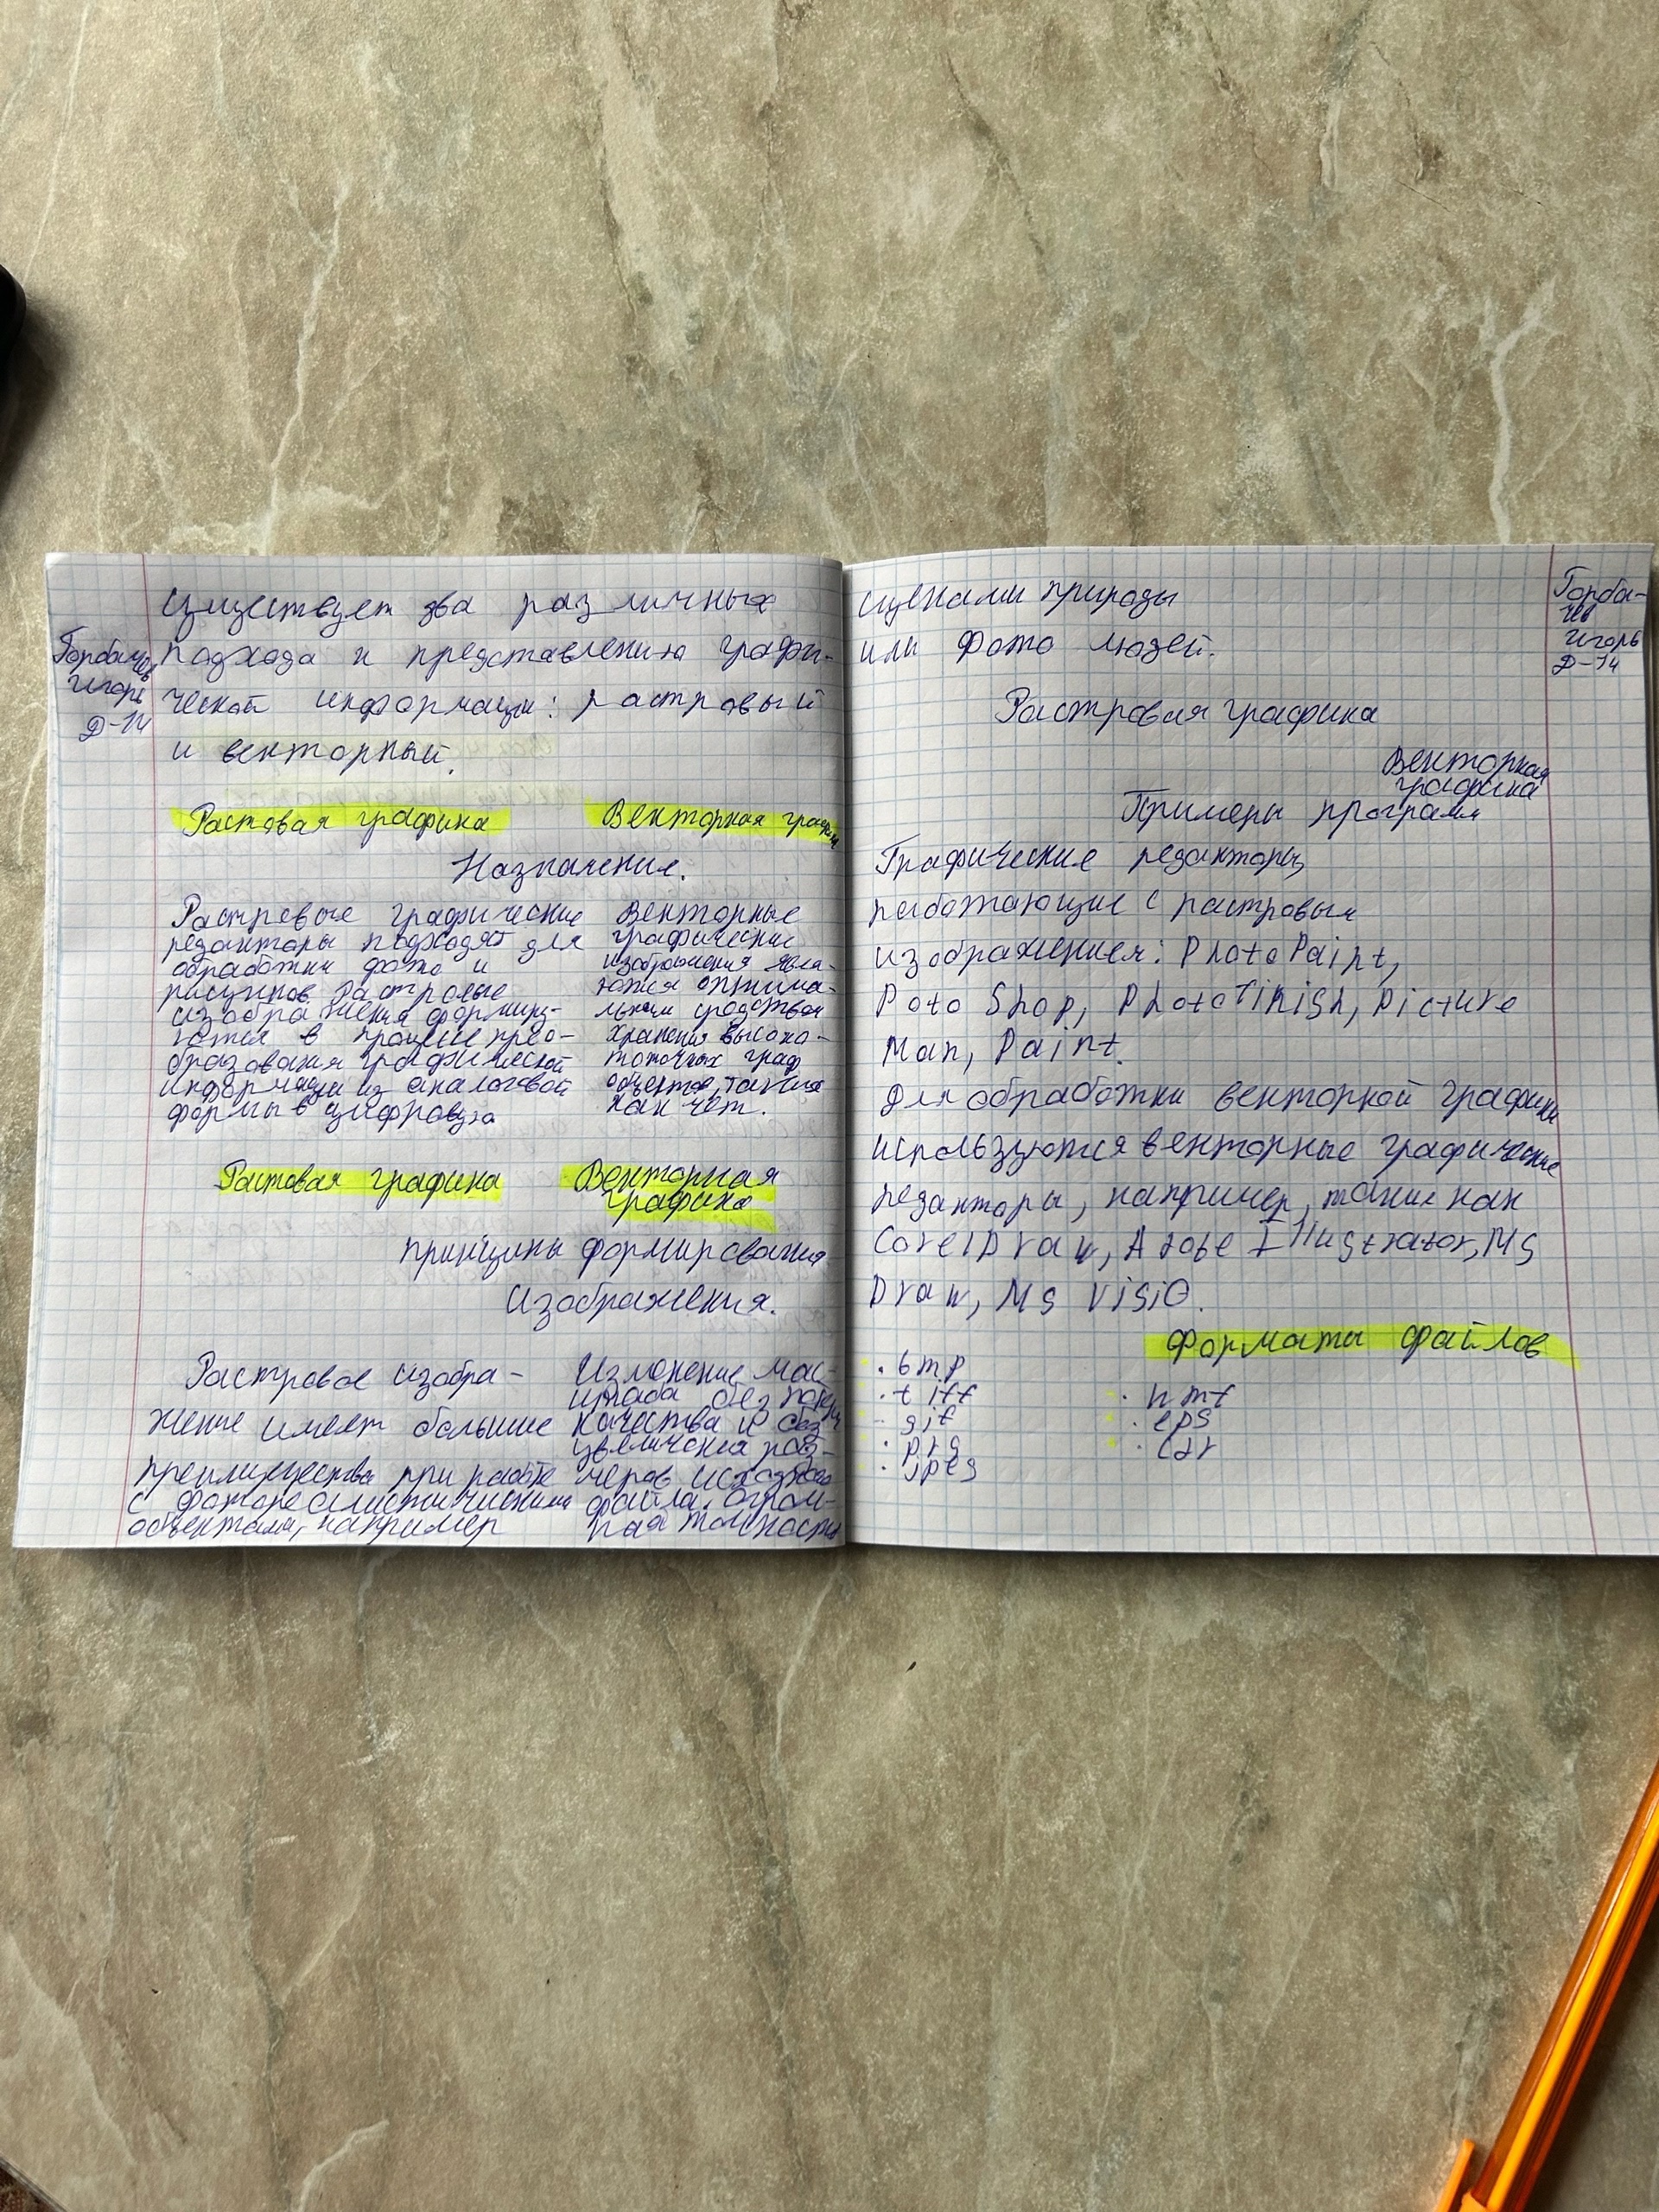 Горбачев
Игорь
Д-14
Существует два различных
подхода к представлению графи-
ческой информации: растровый
и векторный.
Растовая графика
Векторная графика
Назначение.
Растровые графические
редакторы подходят для
обработки фото и
рисунков. Растровые
изображения формиру-
ются в процессе прео-
бразования графической
информации из аналоговой
формы в цифровую
Векторные
графические
изображения явля-
ются оптима-
льным средством
хранения высоко-
точных граф
объектов, таких
как чет.
Растовая графика
Векторная
графика
Принципы формирования
Изображения.
Растровое изобра-
жение имеет большие
преимущества при работе
с фотореалистическими
объектами, например
Изменение мас-
штаба без
качества и без
увеличения раз-
меров исходного
файла. Огром-
ная точность
Горба-
чев
Игорь
Д-14
сценами природы
или фото людей.
Растровая графика
Векторная
графика
Примеры программ
Графические редакторы,
работающие с растровым
изображением: PhotoPaint,
Poto Shop, PhotoFinish, Picture
Man, Paint.
Для обработки векторной графики
используются векторные графические
редакторы, например, такие как
CorelDraw, Adobe Illustrator, MS
Draw, MS Visio.
Форматы файлов
· bmp
· tiff
· gif
· png
· jpeg
· wmf
· eps
· cdr